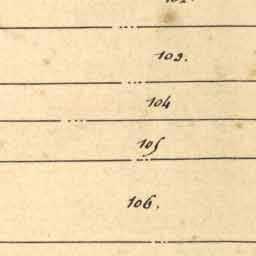 103.
104
105
106.